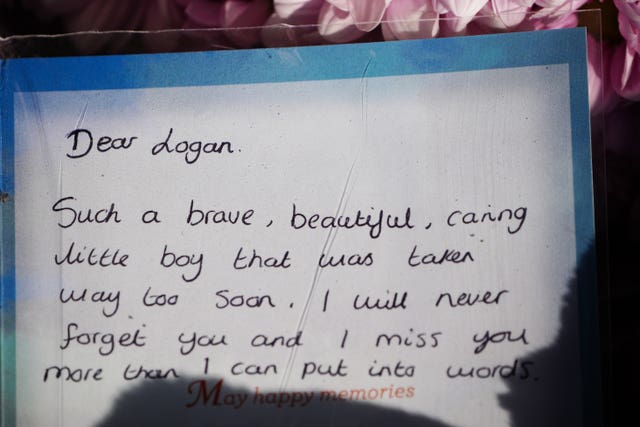 Dear Logan.
Such a brave, beautiful, caring
little boy that was taken
way too soon. I will never
forget you and I miss you
more than I can put into words.
May happy memories